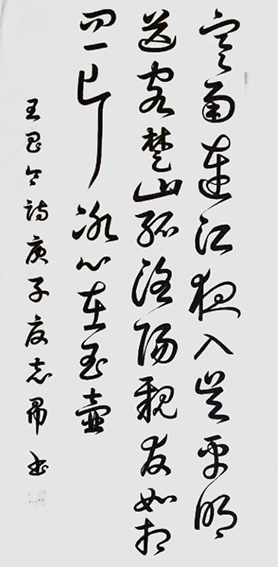 寒雨連江夜入吳平明
送客楚山孤洛陽親友如相
問一片冰心在玉壺
王昌令詩庚子夏志書